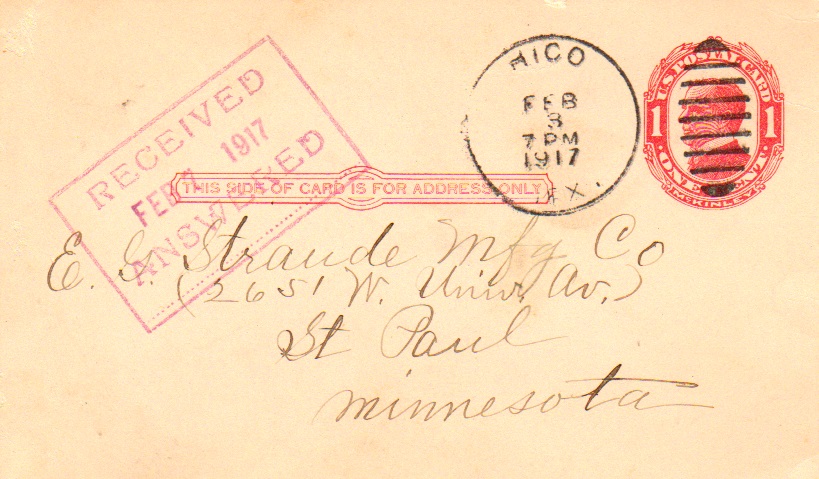 RECEIVED
FEB 7 1917
ANSWERED
HICO
FEB
3
7 PM
1917
TEX.
U.S. POSTAL CARD
1 1
ONE CENT
McKINLEY
THIS SIDE OF CARD IS FOR ADDRESS ONLY
E. G. Straude Mfg Co
(2651 W. Univ. Av.)
St Paul
Minnesota